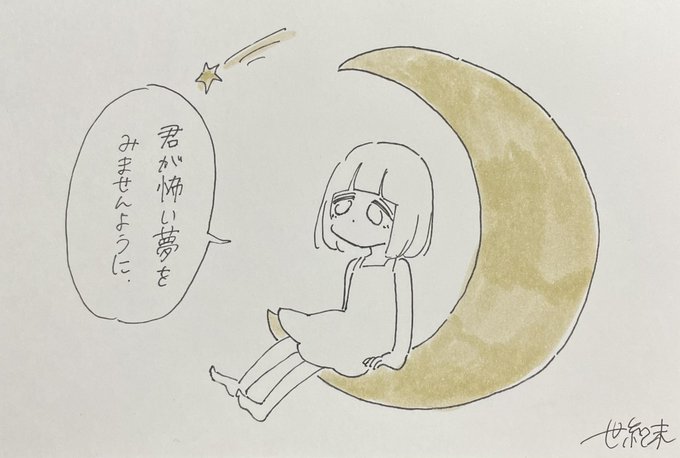 君が怖い夢を
みませんように.
世紀末